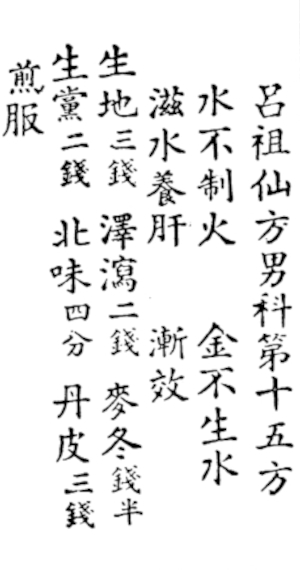 呂祖仙方男科第十五方
水不制火　金不生水
滋水養肝　漸效
生地三錢　澤瀉二錢　麥冬錢半
生黨二錢　北味四分　丹皮三錢
煎服